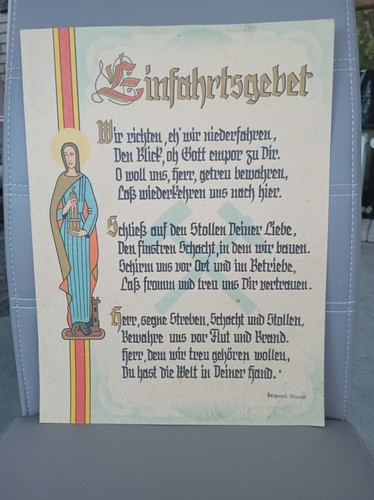 Einfahrtsgebet
Wir richten, eh' wir niederfahren,
Den Blick, oh Gott empor zu Dir.
O woll uns, Herr, getreu bewahren,
Laß wiederkehren uns nach hier.
Schließ auf den Stollen Deiner Liebe,
Den finstren Schacht, in dem wir bauen.
Schirm uns vor Ort und im Betriebe,
Laß fromm und treu uns Dir vertrauen.
Herr, segne Streben, Schacht und Stollen,
Bewahre uns vor Flut und Brand.
Herr, dem wir treu gehören wollen,
Du hast die Welt in Deiner Hand.
Bergwerk Warndt